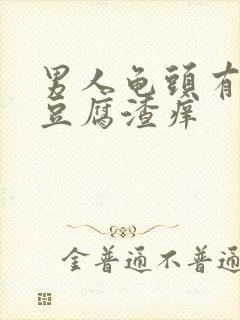 男人龟頭有
豆腐渣痒
金普通不普通